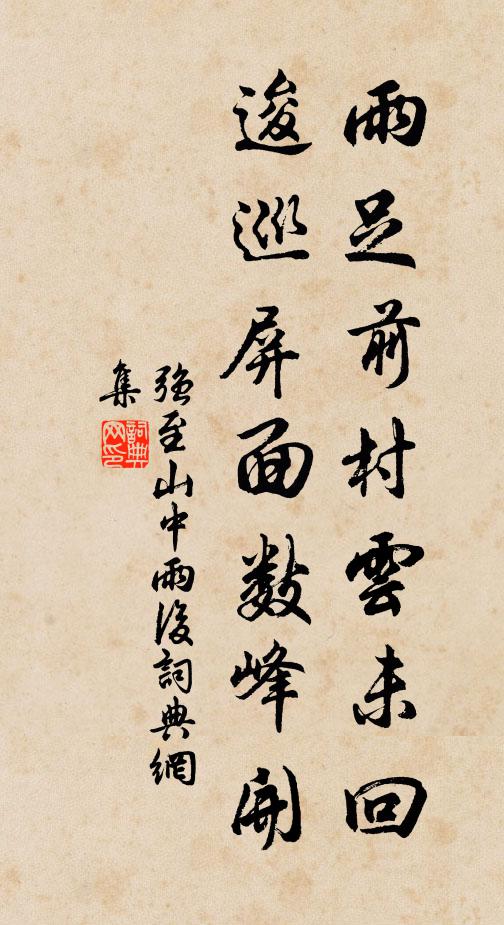 雨足前村雲未回
逡巡屏面數峰開
強至山中雨後詞典網
集
詞典
网印